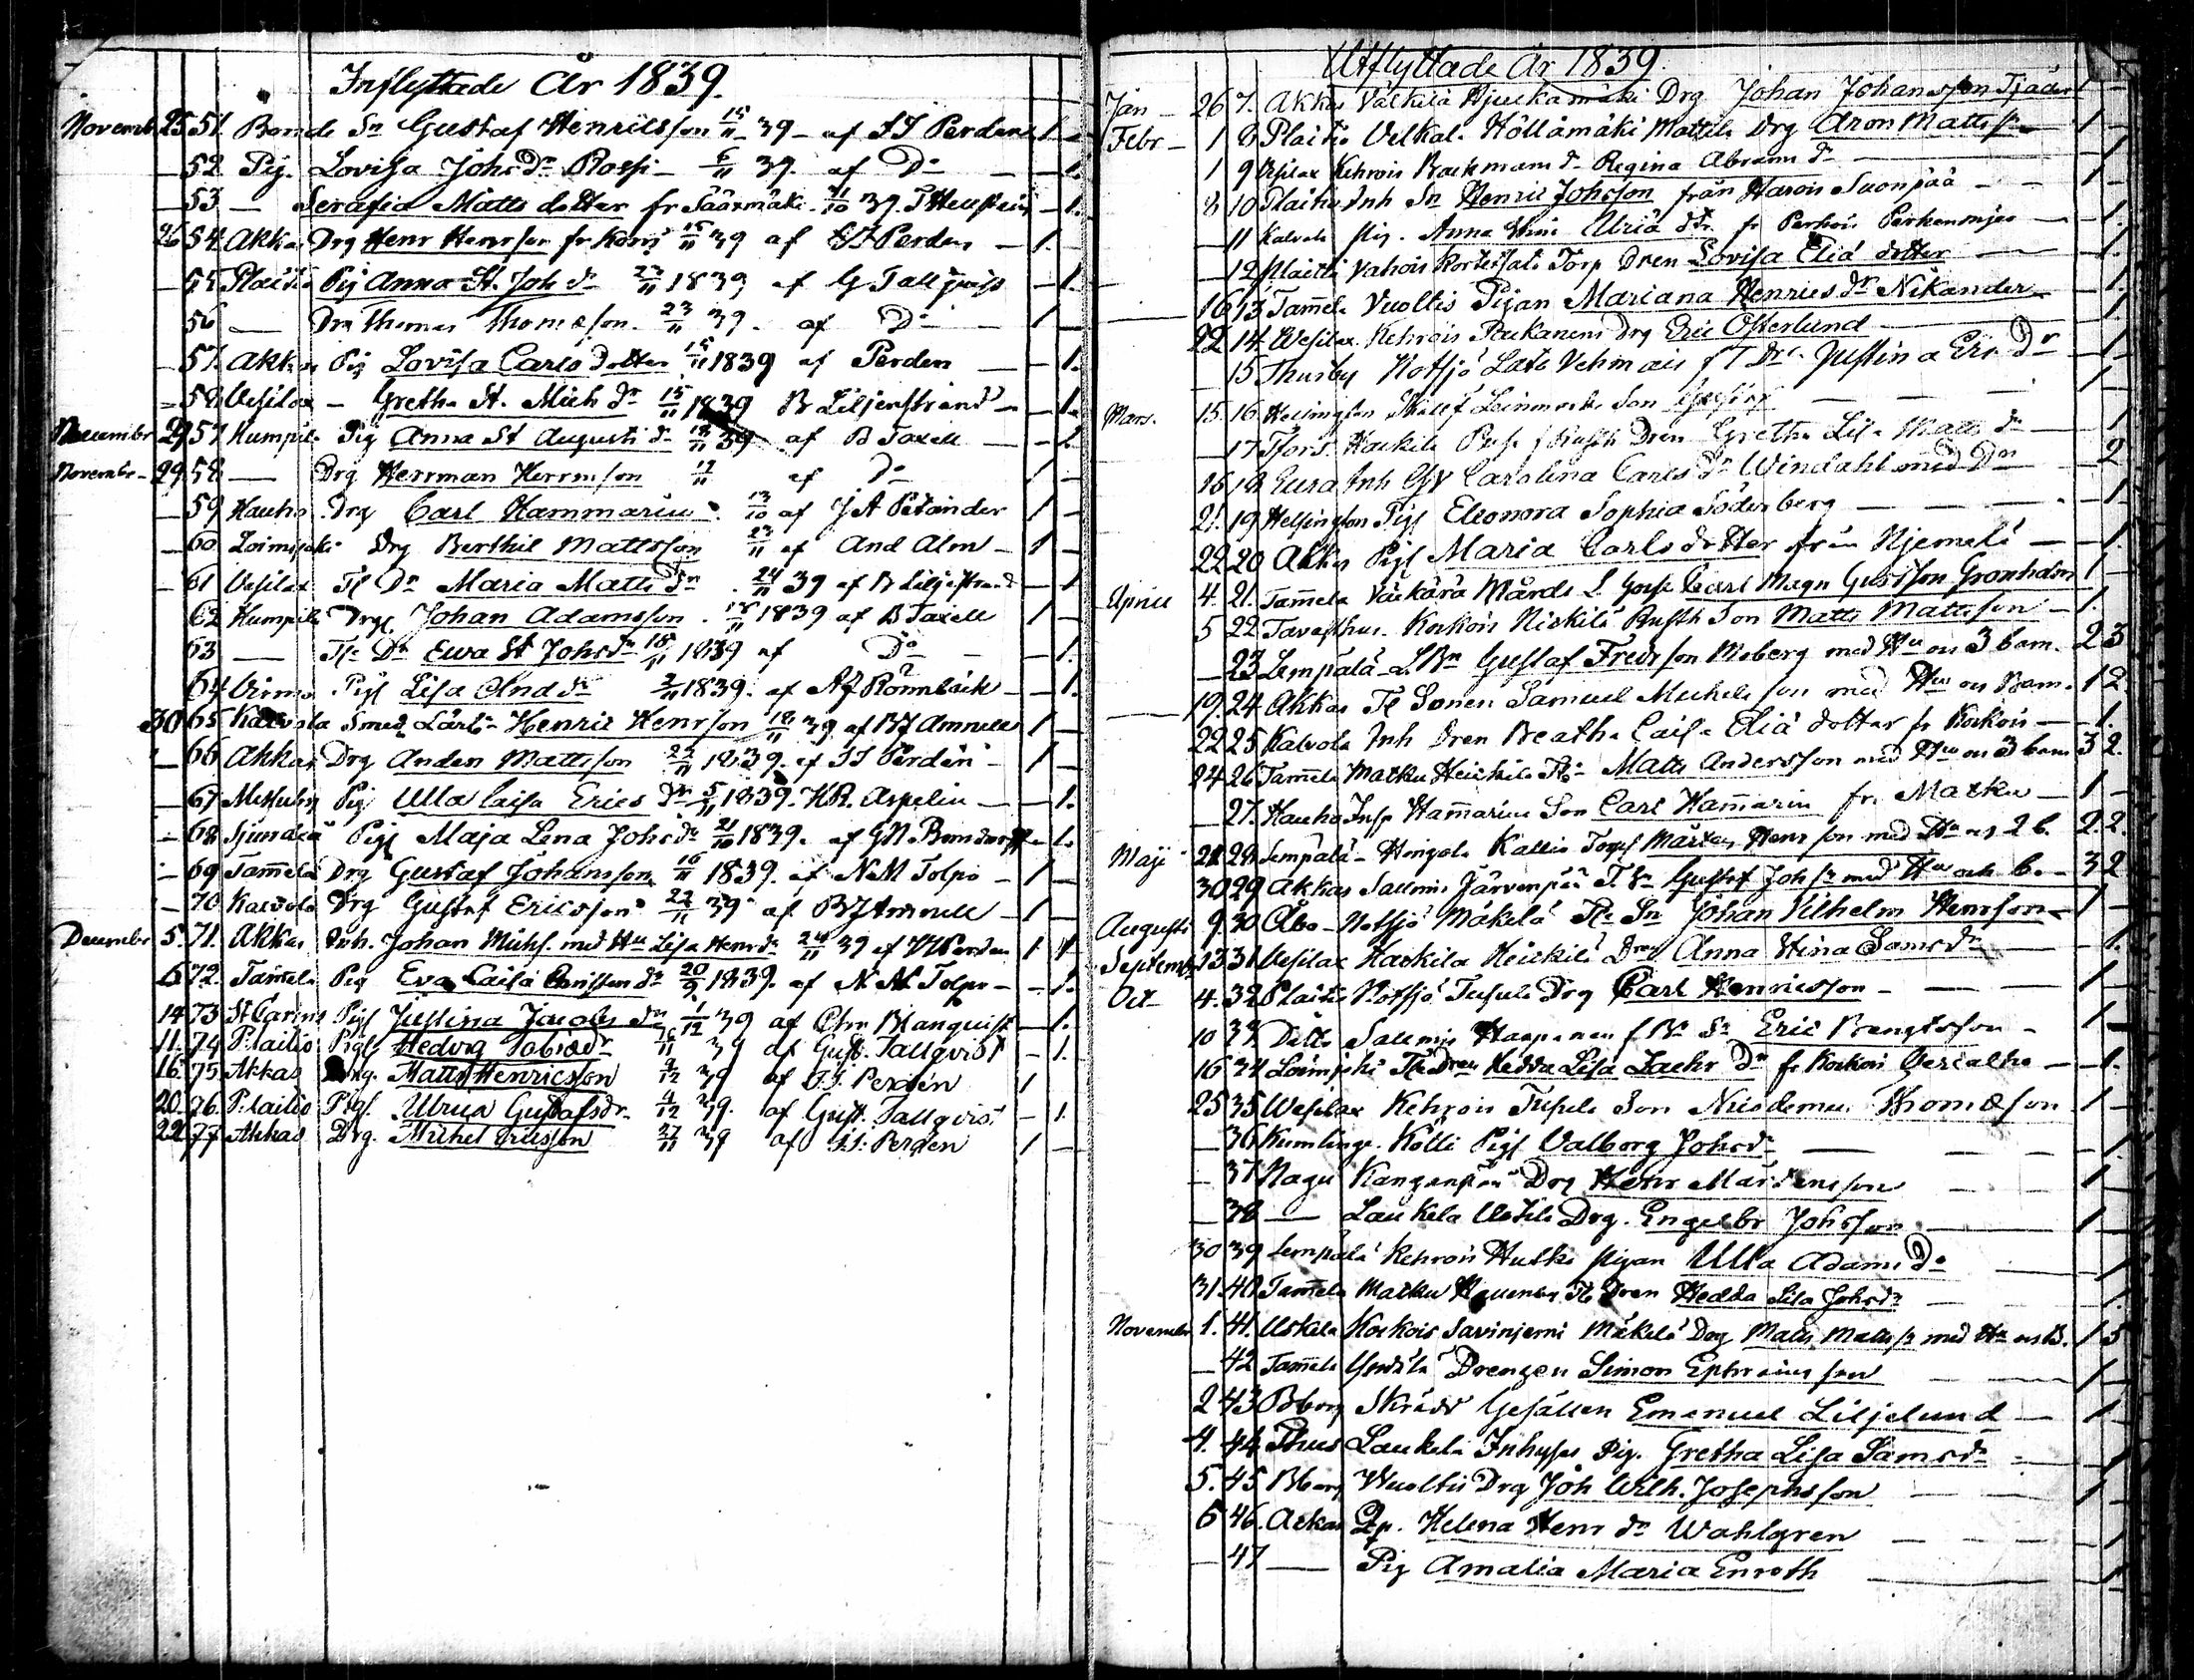 Inflyttade År 1839.
Novemb. 25 51. Bonde Sn Gustaf Henricsson 15/11 39 af J J Perden 1 –
– 52 Pig. Lovisa Johsdr Rossi 6/11 39. af Do – 1.
– 53 – Serafia Matts dotter fr Säärmäki 31/10 39. – 1.
26 54. Akkas Drg Henr Henrson fr 15/11 39 af J J Perden – 1.
– 55 Plaitis Pig Anna St. Joh dr 23/11 1839 af G Tallqvist – 1.
56 – Drg Thomas Thomæson 23/11 39. af Do – 1 –
– 57. Akkas Pig Lovisa Carls dotter 15/11 1839 af Perden – 1.
– 58. Vesilax – Gretha St. Mich dr 15/11 1839 B Liljenstrand – 1.
November 29 57 Humpila Pig Anna St Augusti dr 18/11 39 af B Taxell – 1.
November – 29 58 – Drg Herrman Herrmson 17/11 af Do 1 –
– 59 Hauho Drg Carl Hammarin 13/10 af J A Petander 1 –
– 60 Loimijoki Drg Berthil Mattsson 23/11 af And Alm – 1 –
– 61 Vesilax Tl Dr Maria Matts dr 24/11 39 af B Liljestrand – 1
62 Humpila Drg Johan Adamsson 18/11 1839 af B Taxell 1 –
63 – Tl Dr Ewa St Johsdr 18/11 1839 af Do – 1.
64 Virmo Pigl Lisa And dr 2/11 1839. af A F Rönnbäck – 1.
30 65 Kalvola Smed Lärl. Henric Henrson 18/11 39 af B J Amnell 1 –
– 66 Akkas Drg Anders Mattsson 22/11 1839. af J J Perdén 1 –
– 67 Pig Ulla Caisa Erics dr 5/11 1839. H R. Aspelin – 1.
– 68 Sjundeå Pigl Maja Lena Johsdr 21/10 1839. af G N – 1.
– 69 Tam̄ela Drg Gustaf Johansson 16/11 1839. af N M Tolpo – 1 –
– 70 Kalvola Drg Gustaf Ericsson 22/11 39 af B J Amnell – 1 –
December 5. 71. Akkas Inh. Johan Michs. med Hu Lisa Henrsdr 24/11 39 af J J Perden 1 1
6 72. Tam̄ela Pig Eva Caisa dr 20/9 1839. af N M Tolpo – 1.
14 73 St Carins Pigl Justina Jacobs dr 1/12 39 af Chr Blanquist – 1.
11. 74 P:laitio Pigl. Hedvig Tobiædr 16/11 39 af Gust. Tallqvist – 1.
16. 75 Akkas Drng. Matts Henricsson 9/12 39 af J. J. Perdén 1
20. 76. P:laitio Pigl. Ulrica Gustafsdr. 4/12 39. af Gust. Tallqvist – 1.
22. 77 Akkas Drg. Michel Ericsson 27/11 39 af J. J. Perdén 1 –
Utflyttade År 1839.
Jan – 26 7. Akkas Välkilä Hjuckamäki Drg Johan Johansson Tjäder 1 –
Febr – 1 8 Plaitis Velkala Höllämäki Mattila Drg Aron Mattsson 1 –
1 9 Vesilax Kehrois Backmans dr Regina Abrams dr – 1
8 10 Plaitis Inh Sn Henric Johsson från Harois Suonpää – 1 –
– 11 Kalvola Pig. Anna Stina Uriä dtr fr Perhois – 1.
– 12 Plaitis Vahois Torp Dren Lovisa Eliä dotter – 1.
16 13 Tam̄ela Vuoltis Pigan Mariana Henrics dr Nikander – 1.
22 14 Vesilax Kehrois Drg Eric Österlund – 1.
– 15 Thusby Notsjö Lato Vehmais Justina Er. Dr – 1
Mars. 15. 16. Helsingfors Loimi Son – 1
– 17 Tfors. Dren Gretha Lisa Matts dr – 1
16 18 Eura Inh Carolina Carls dr Windahl med Dr – 2
21. 19 Helsingfors Pigl Eleonora Sophia Söderberg – 1
22 20 Akkas Pigl Maria Carls dotter från Njemelä – 1.
April 4. 21. Tam̄ela Väkärä Mårds Carl Magn Gusfsson Gronholm 1 –
5 22 Tavasthus. Korkois Nickilä Rusth Son Matts Mattsson 1.
– 23 Lempälä Gustaf Fredrson Moberg med Hu o 3 barn. 2 3
19. 24 Akkas Tl Sonen Samuel Michelsson med Hu o Barn. 1 2
22 25 Kalvola Inh Dren Beatha Caisa Eliä dotter fr Korkois – 1.
24 26 Tam̄ela Matku Heickilä Matts Andersson med Hu o 3 barn 3 2.
– 27. Hauho Hamarin Son Carl Ham̄arin fr Matku – 1 –
Maji 21 28 Lempälä Hongola Kallio Torp Mårten Henrson med Hu o 2 b. 2 2.
30 29 Akkas Sallmis Järvenpää T. Sn Gustaf Johsn med Hu och b. 3 2
Augusti 9. 30 Åbo – Notsjö Mäkelä Tl Sn Johan Vilhelm Henrson – 1 –
Septemb. 13. 31 Vesilax Harkila Heickilä Dren Anna Stina Samsdr – 1.
Oct – 4. 32 Plaitis Notsjö Tupula Drg Carl Henricsson – 1 –
10 33. Ditto Sallmis Haapanen Sn Eric Bengtsson – 1 –
16 34 Loimijoki Tl Dren Hedda Lisa Zachr dr fr Korkois – 1.
25 35 Vesilax Kehrois Tupula Son Nicodemus Thomæson 1 –
– 36 Kumlinge. Kölli Pigl Valborg Johsdr – 1.
– 37 Nagu Kangenpää Drg Henr Mårtensson – 1
– 38 – Laukela Uotila Drg. Engelbr Johsson – 1
30 39 Lempälä Kehrois Hutko pigan Ulla Adams Dr – 1
31. 40 Tam̄ela Matku Tl Dren Hedda Lisa Johsdr – 1.
November. 1. 41. Uskela Korkois Savinjemi Mäkelä Drg Matts Mattsn med Hu o B. 1 5
– 42 Tam̄ela Drengen Simon Ephraimsson – 1 –
2 43 Bborg Skrädd Gesällen Emanuel Liljelund – 1
4. 44 Thus Laukela Inhyses Pig. Gretha Lisa Samsdr – 1
5. 45 Bborg Wuoltis Drg Joh Wilh. Josephsson – 1
6 46. Ackas Pp. Helena Henr dr Wahlgren – 1
– 47 – Pig Amalia Maria Enroth – 1